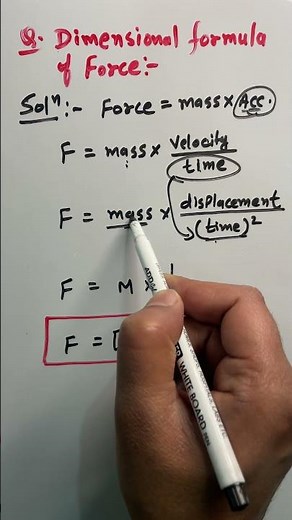 Q. Dimensional formula
of Force:-
Solⁿ:- Force = mass × Acc.
F = mass × velocity
time
F = mass × displacement
(time)²
F = M ×
F = [
WHITE BOARD